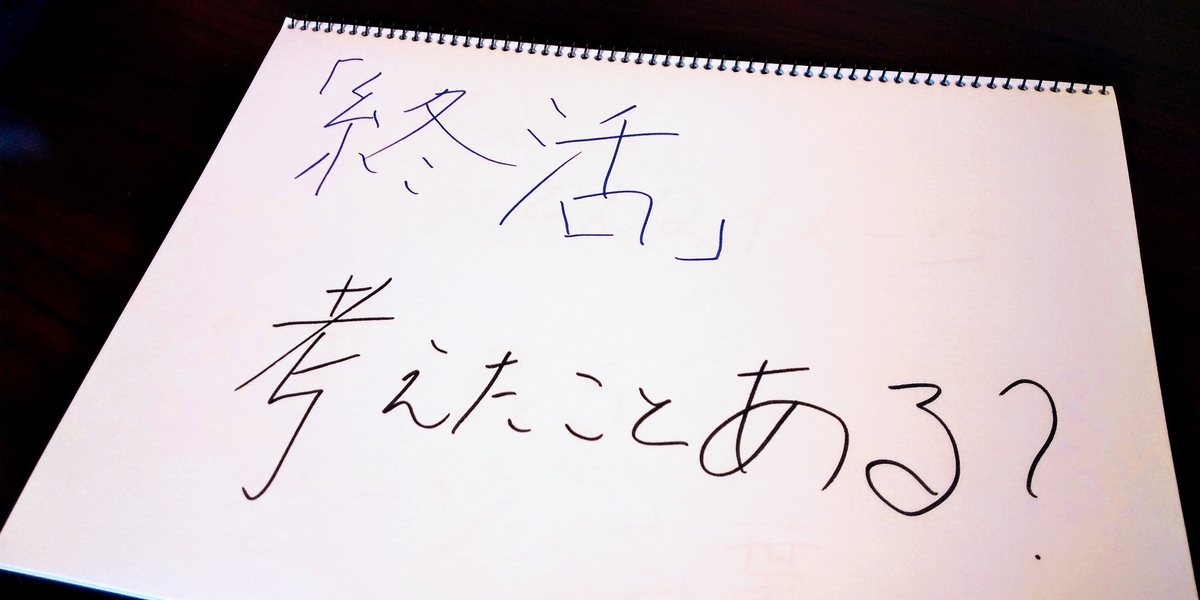 「終活」
考えたことある?